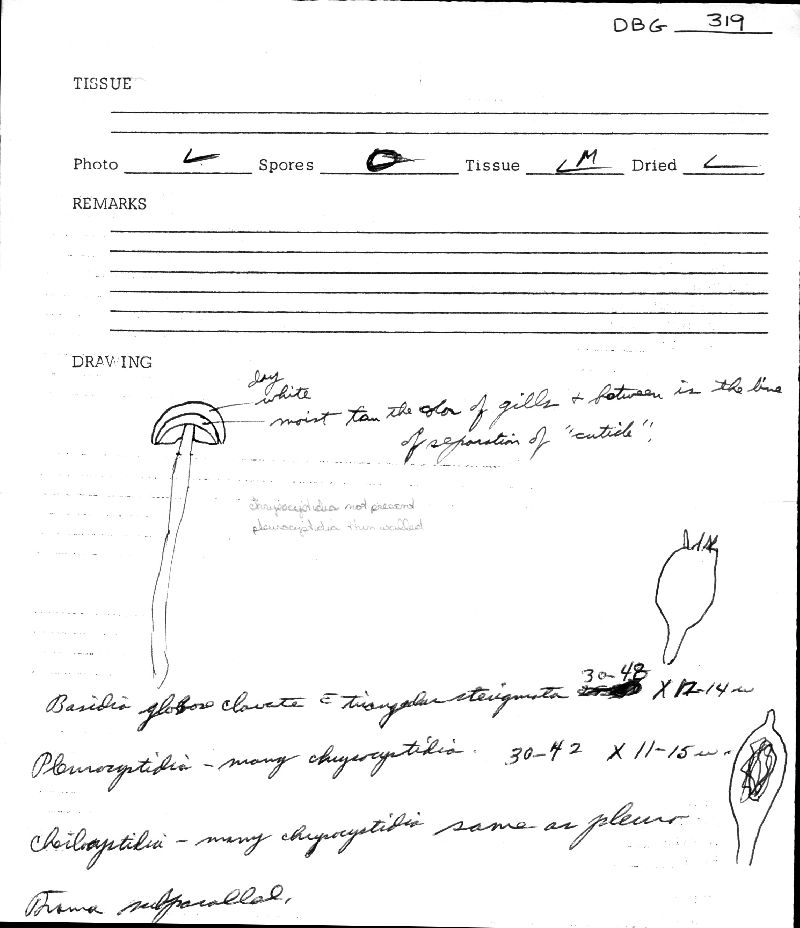 DBG 319
TISSUE
Photo ✓ Spores O Tissue ✓ M Dried ✓
REMARKS
DRAWING
dry
white
moist tan the color of gills + between is the line
of separation of "cuticle".
chrysocystidia not present
pleurocystidia thin walled
30-48
Basidia globose clavate c̄ triangular sterigmata X 12-14 u
Pleurocystidia - many chrysocystidia. 30-42 X 11-15 u.
Cheilocystidia - many chrysocystidia same as pleuro
Trama subparallel.